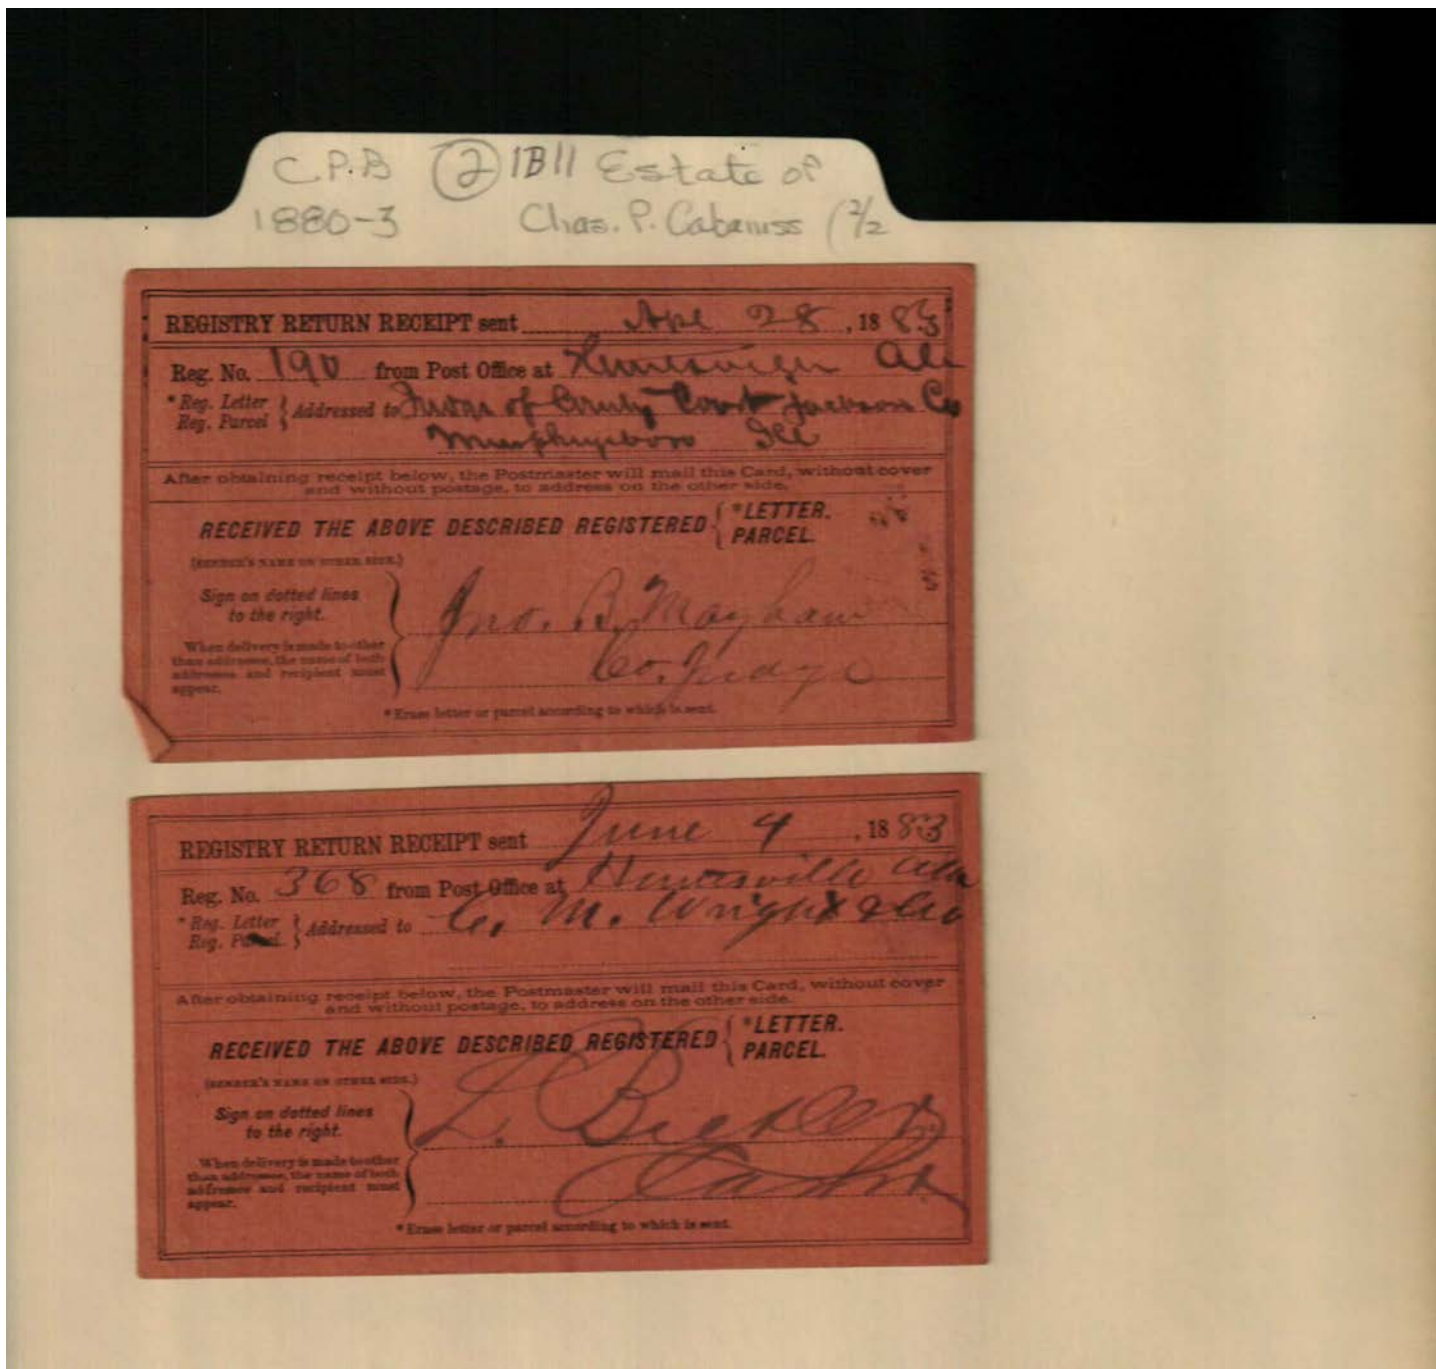 C.P.B ② 1B11 Estate of
1880-3 Chas. P. Cabaniss (2/2
REGISTRY RETURN RECEIPT sent Apl 28, 1883
Reg. No. 190 from Post Office at Huntsville Ala
*Reg. Letter
Reg. Parcel } Addressed to Judge of County Court Jackson Co
Murphysboro Ill
After obtaining receipt below, the Postmaster will mail this Card, without cover
and without postage, to address on the other side.
RECEIVED THE ABOVE DESCRIBED REGISTERED { *LETTER.
PARCEL.
(SENDER'S NAME ON OTHER SIDE.)
Sign on dotted lines
to the right.
Jno. B. Mayham
When delivery is made to other
than addressee, the name of both
addressee and recipient must
appear.
Co. Judge
*Erase letter or parcel according to which is sent.
REGISTRY RETURN RECEIPT sent June 4, 1883
Reg. No. 368 from Post Office at Huntsville Ala
*Reg. Letter
Reg. Parcel } Addressed to C. M. Wright & Co
After obtaining receipt below, the Postmaster will mail this Card, without cover
and without postage, to address on the other side.
RECEIVED THE ABOVE DESCRIBED REGISTERED { *LETTER.
PARCEL.
(SENDER'S NAME ON OTHER SIDE.)
Sign on dotted lines
to the right.
L.
When delivery is made to other
than addressee, the name of both
addressee and recipient must
appear.
*Erase letter or parcel according to which is sent.